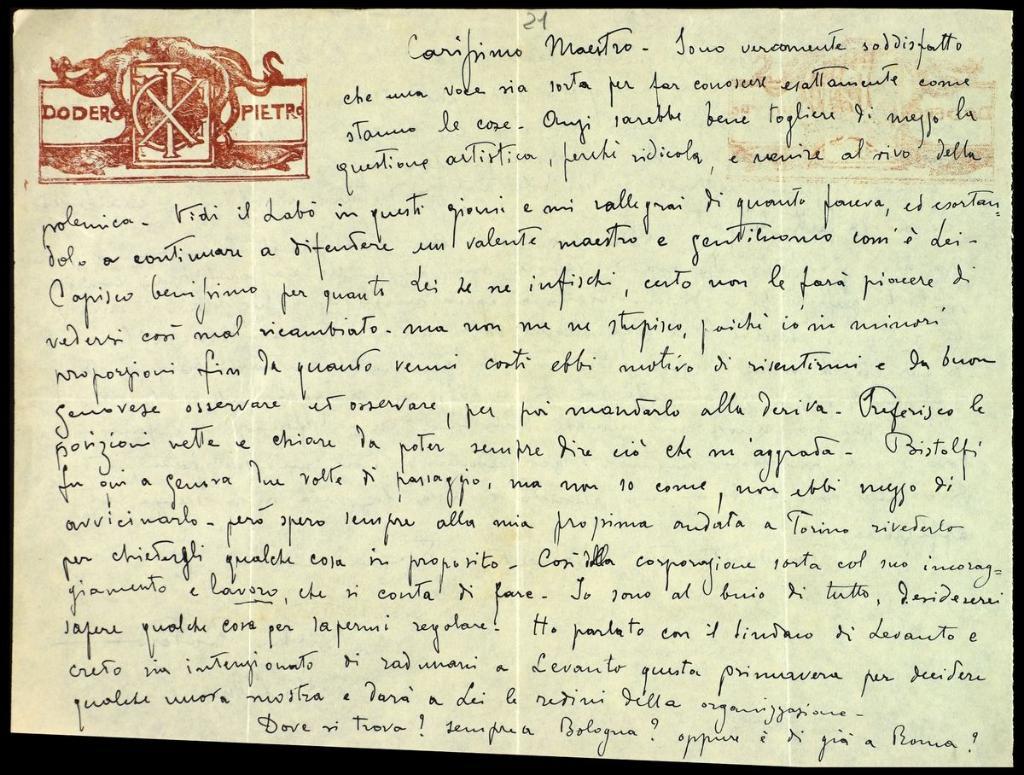 21
DODERO PIETRO
Carissimo Maestro - Sono veramente soddisfatto
che una voce sia sorta per far conoscere esattamente come
stanno le cose - Anzi sarebbe bene togliere di mezzo la
questione artistica, perchè ridicola, e venire al vivo della
polemica - Vidi il Labò in questi giorni e mi rallegrai di quanto faceva, ed esortan=
dolo a continuare a difendere un valente maestro e gentiluomo com'è Lei -
Capisco benissimo per quanto Lei se ne infischi, certo non le farà piacere di
vedersi così mal ricambiato - ma non me ne stupisco, poichè io in minori
proporzioni fin da quando venni costì ebbi motivo di risentirmi e da buon
genovese osservare et osservare, per poi mandarlo alla deriva - Preferisco le
posizioni nette e chiare da poter sempre dire ciò che m'aggrada - Bistolfi
fu qui a Genova due volte di passaggio, ma non so come, non ebbi mezzo di
avvicinarlo - però spero sempre alla mia prossima andata a Torino rivederlo
per chiedergli qualche cosa in proposito - Così della corporazione sorta col suo incorag=
giamento e lavoro, che si conta di fare - Io sono al buio di tutto, desidererei
sapere qualche cosa per sapermi regolare - Ho parlato con il Sindaco di Levanto e
creto sia intenzionato di radunarci a Levanto questa primavera per decidere
qualche nuova mostra e darà a Lei le redini della organizzazione -
Dove si trova? sempre a Bologna? oppure è di già a Roma?